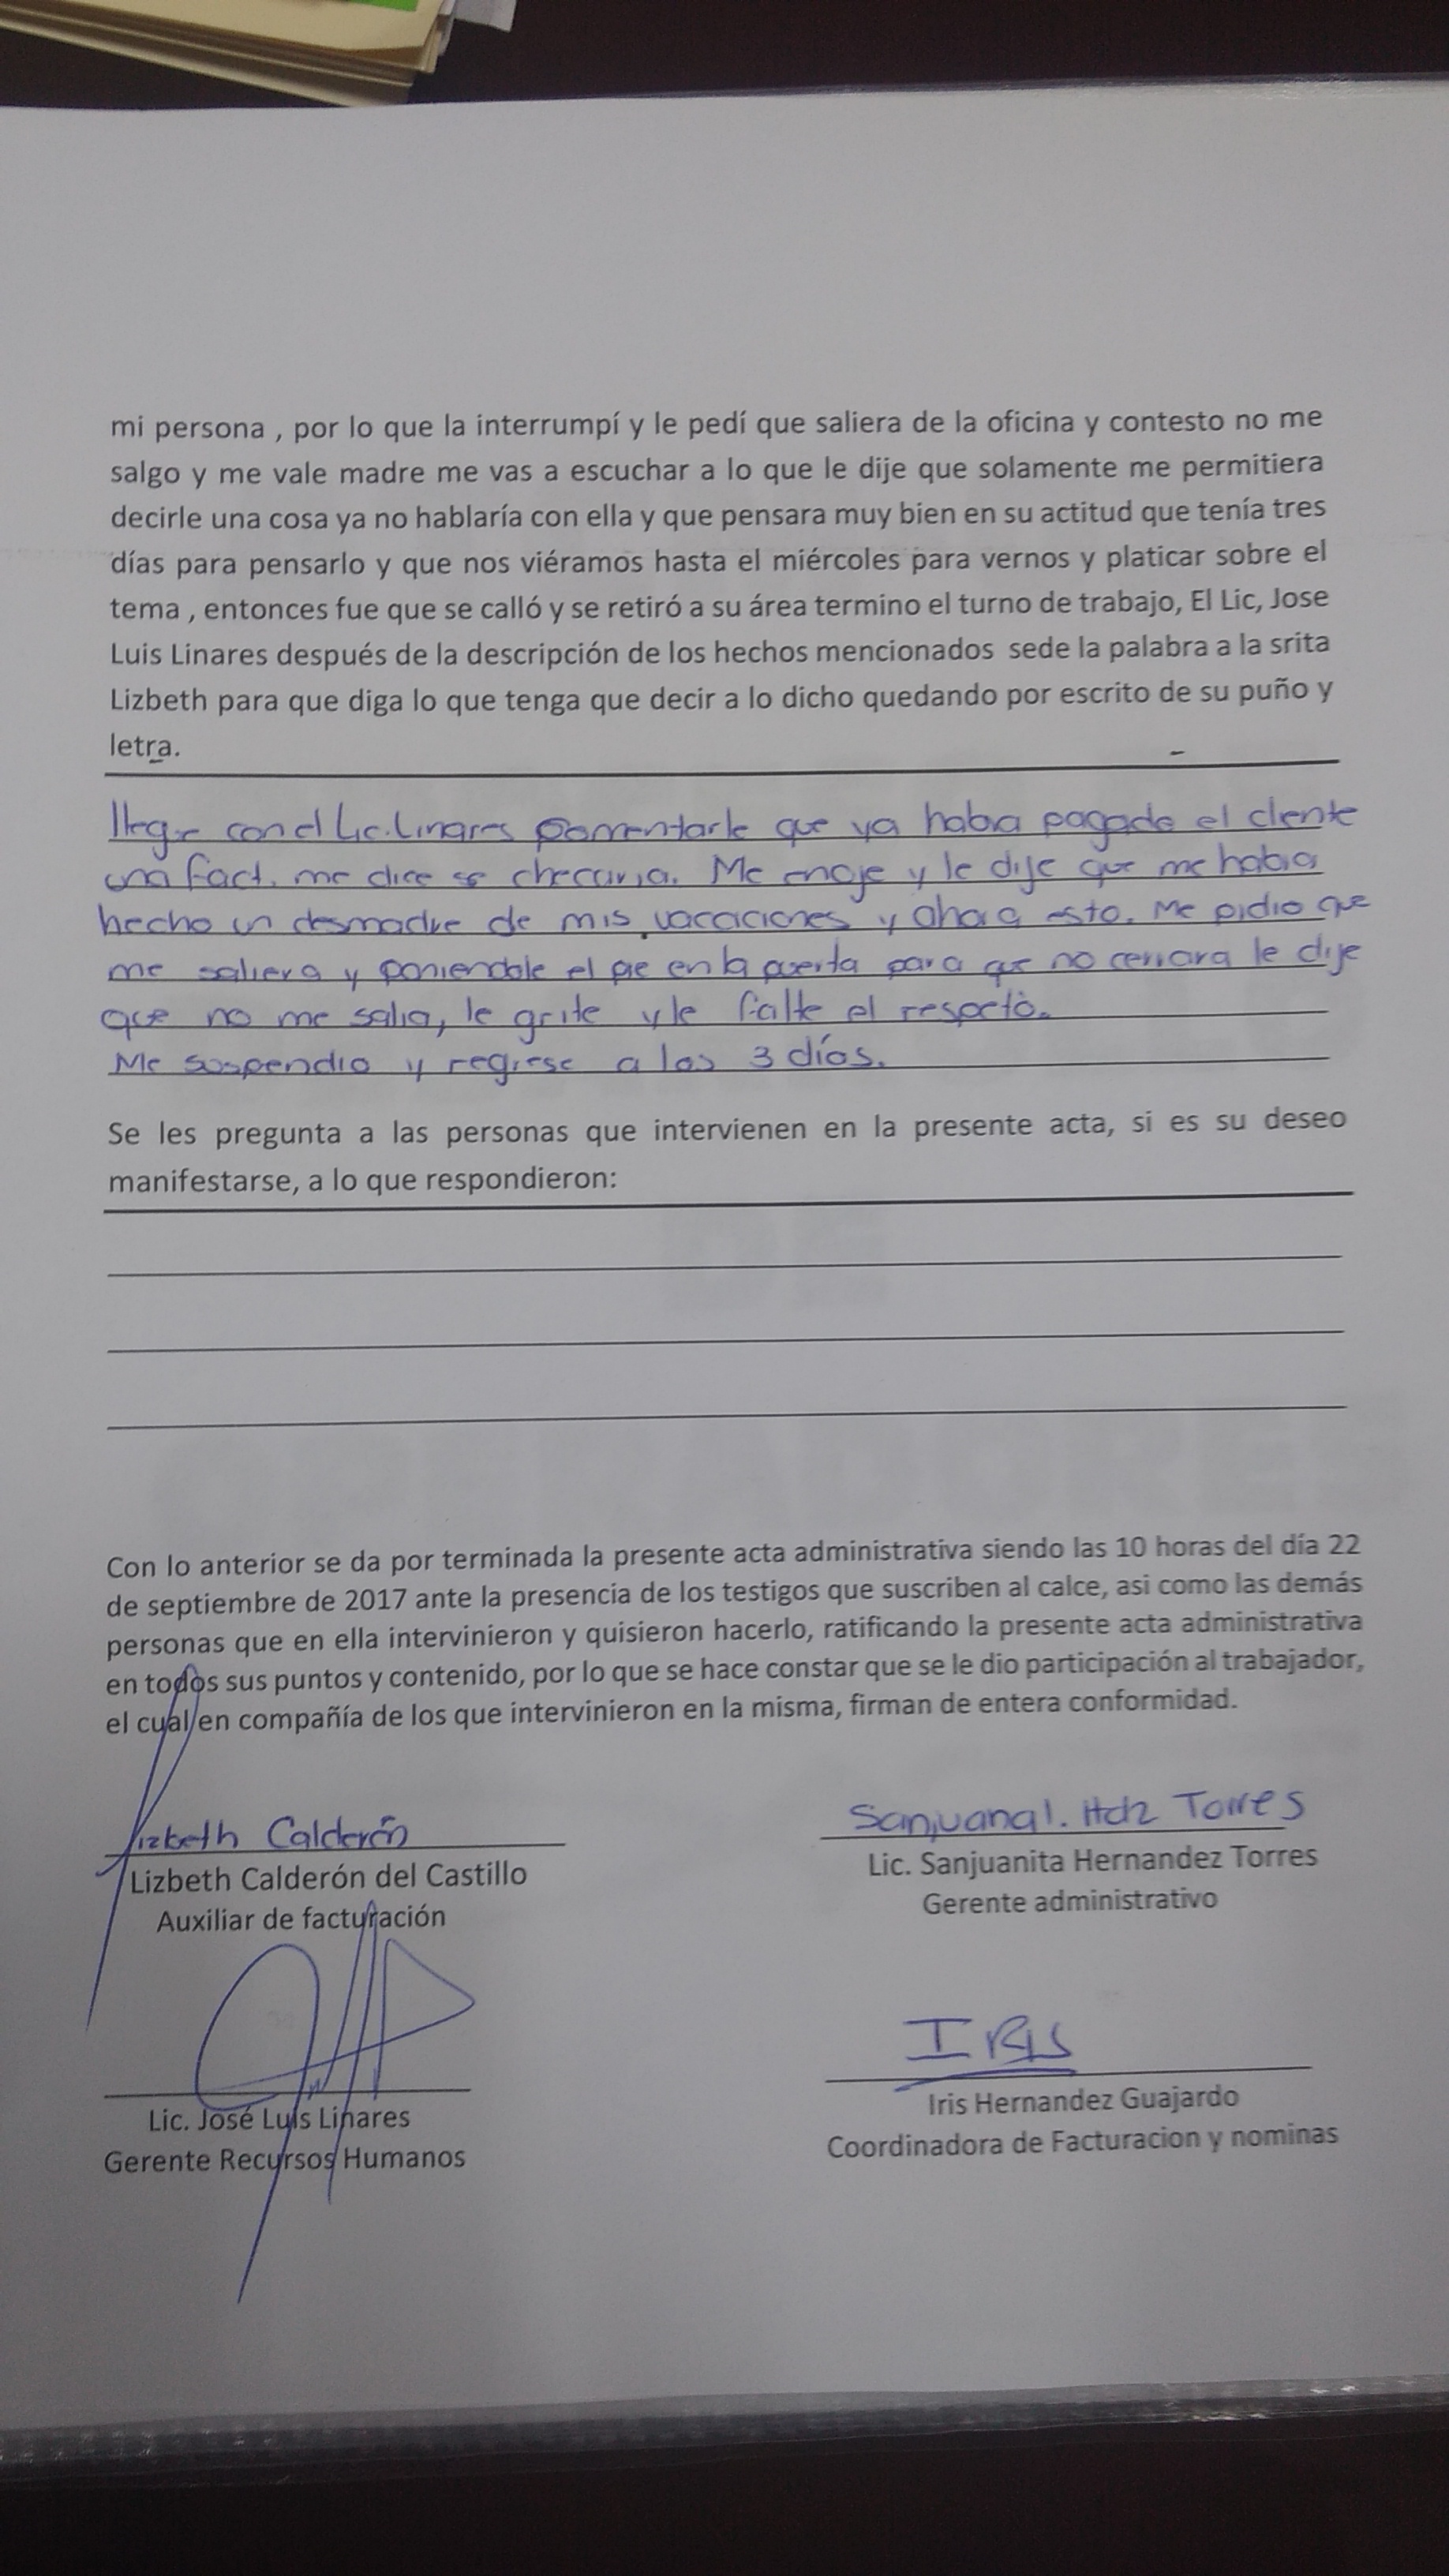 mi persona , por lo que la interrumpí y le pedí que saliera de la oficina y contesto no me
salgo y me vale madre me vas a escuchar a lo que le dije que solamente me permitiera
decirle una cosa ya no hablaría con ella y que pensara muy bien en su actitud que tenía tres
días para pensarlo y que nos viéramos hasta el miércoles para vernos y platicar sobre el
tema , entonces fue que se calló y se retiró a su área termino el turno de trabajo, El Lic, Jose
Luis Linares después de la descripción de los hechos mencionados sede la palabra a la srita
Lizbeth para que diga lo que tenga que decir a lo dicho quedando por escrito de su puño y
letra.
llegue con el Lic. Linares comentarle que ya habia pagado el cliente
una fact. me dice se checaria. Me enoje y le dije que me habia
hecho un desmadre de mis vacaciones y ahora esto. Me pidio que
me saliera y poniendole el pie en la puerta para que no cerrara le dije
que no me salia, le grite y le falte el respeto.
Me suspendio y regrese a los 3 días.
Se les pregunta a las personas que intervienen en la presente acta, si es su deseo
manifestarse, a lo que respondieron:
Con lo anterior se da por terminada la presente acta administrativa siendo las 10 horas del día 22
de septiembre de 2017 ante la presencia de los testigos que suscriben al calce, asi como las demás
personas que en ella intervinieron y quisieron hacerlo, ratificando la presente acta administrativa
en todos sus puntos y contenido, por lo que se hace constar que se le dio participación al trabajador,
el cual en compañía de los que intervinieron en la misma, firman de entera conformidad.
Lizbeth Calderón
Sanjuana I. Hdz Torres
Lizbeth Calderón del Castillo
Lic. Sanjuanita Hernandez Torres
Auxiliar de facturación
Gerente administrativo
IRIS
Lic. José Luis Linares
Iris Hernandez Guajardo
Gerente Recursos Humanos
Coordinadora de Facturacion y nominas